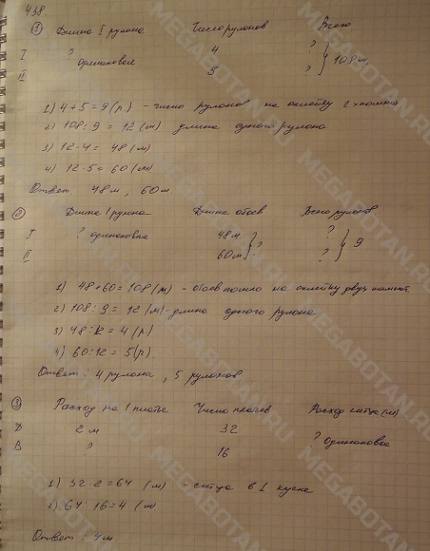 438.
① Длина 1 рулона Число рулонов Всего
I ? 4 ?
одинаковая } 108 м
II 5 ?
1) 4 + 5 = 9 (р) - число рулонов на оклейку 2 комнат
2) 108 : 9 = 12 (м) длина одного рулона
3) 12 · 4 = 48 (м)
4) 12 · 5 = 60 (м)
Ответ 48 м, 60 м
② Длина 1 рулона Длина обоев Всего рулонов
I ? одинаковые 48 м } ? ? } 9
II 60 м ?
1) 48 + 60 = 108 (м) - обоев пошло на оклейку двух комнат
2) 108 : 9 = 12 (м) - длина одного рулона
3) 48 : 12 = 4 (р)
4) 60 : 12 = 5 (р)
Ответ: 4 рулона, 5 рулонов
③ Расход на 1 платье Число платьев Расход ситца (м)
2 м 32
? одинаковое
? 16
1) 32 · 2 = 64 (м) - ситца в 1 куске
2) 64 : 16 = 4 (м)
Ответ: 4 м
MEGABOTAN.RU